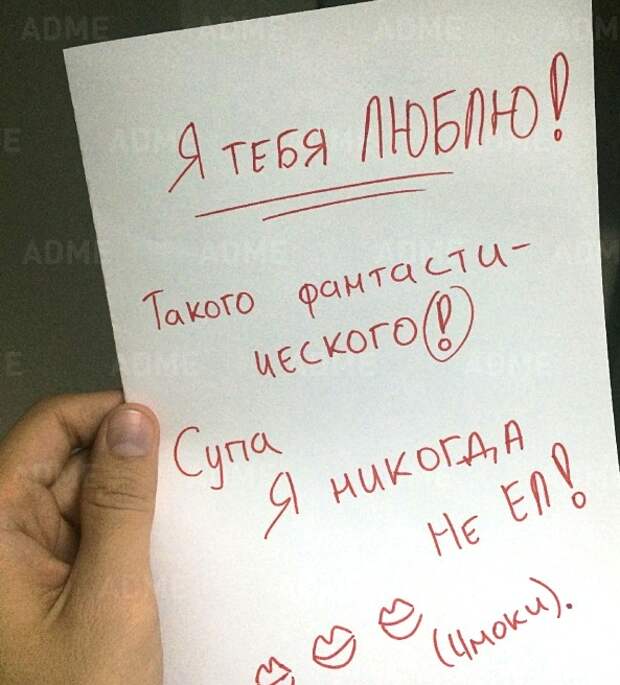 Я ТЕБЯ ЛЮБЛЮ!
Такого фантасти-
ческого(!)
Супа
Я никогда
не ел!
(чмоки).